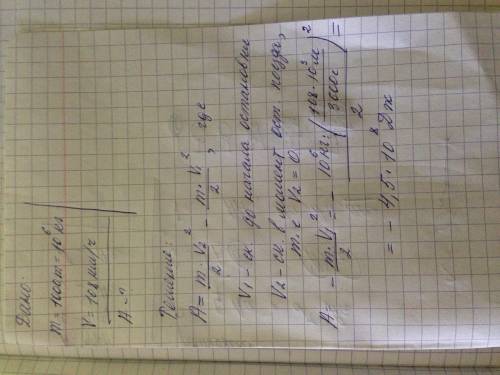 Дано:
m = 1000т = 10⁶ кг
V = 108 км/ч
A - ?
Решение:
A = m·V₂²/2 - m·V₁²/2, где
V₁ - ск. до начала остановки
V₂ - ск. в момент ост. поезда,
т.е V₂ = 0
A = - m·V₁²/2 = - 10⁶ кг·(108·10³ м/3600с)²/2 =
= - 4,5·10⁸ Дж